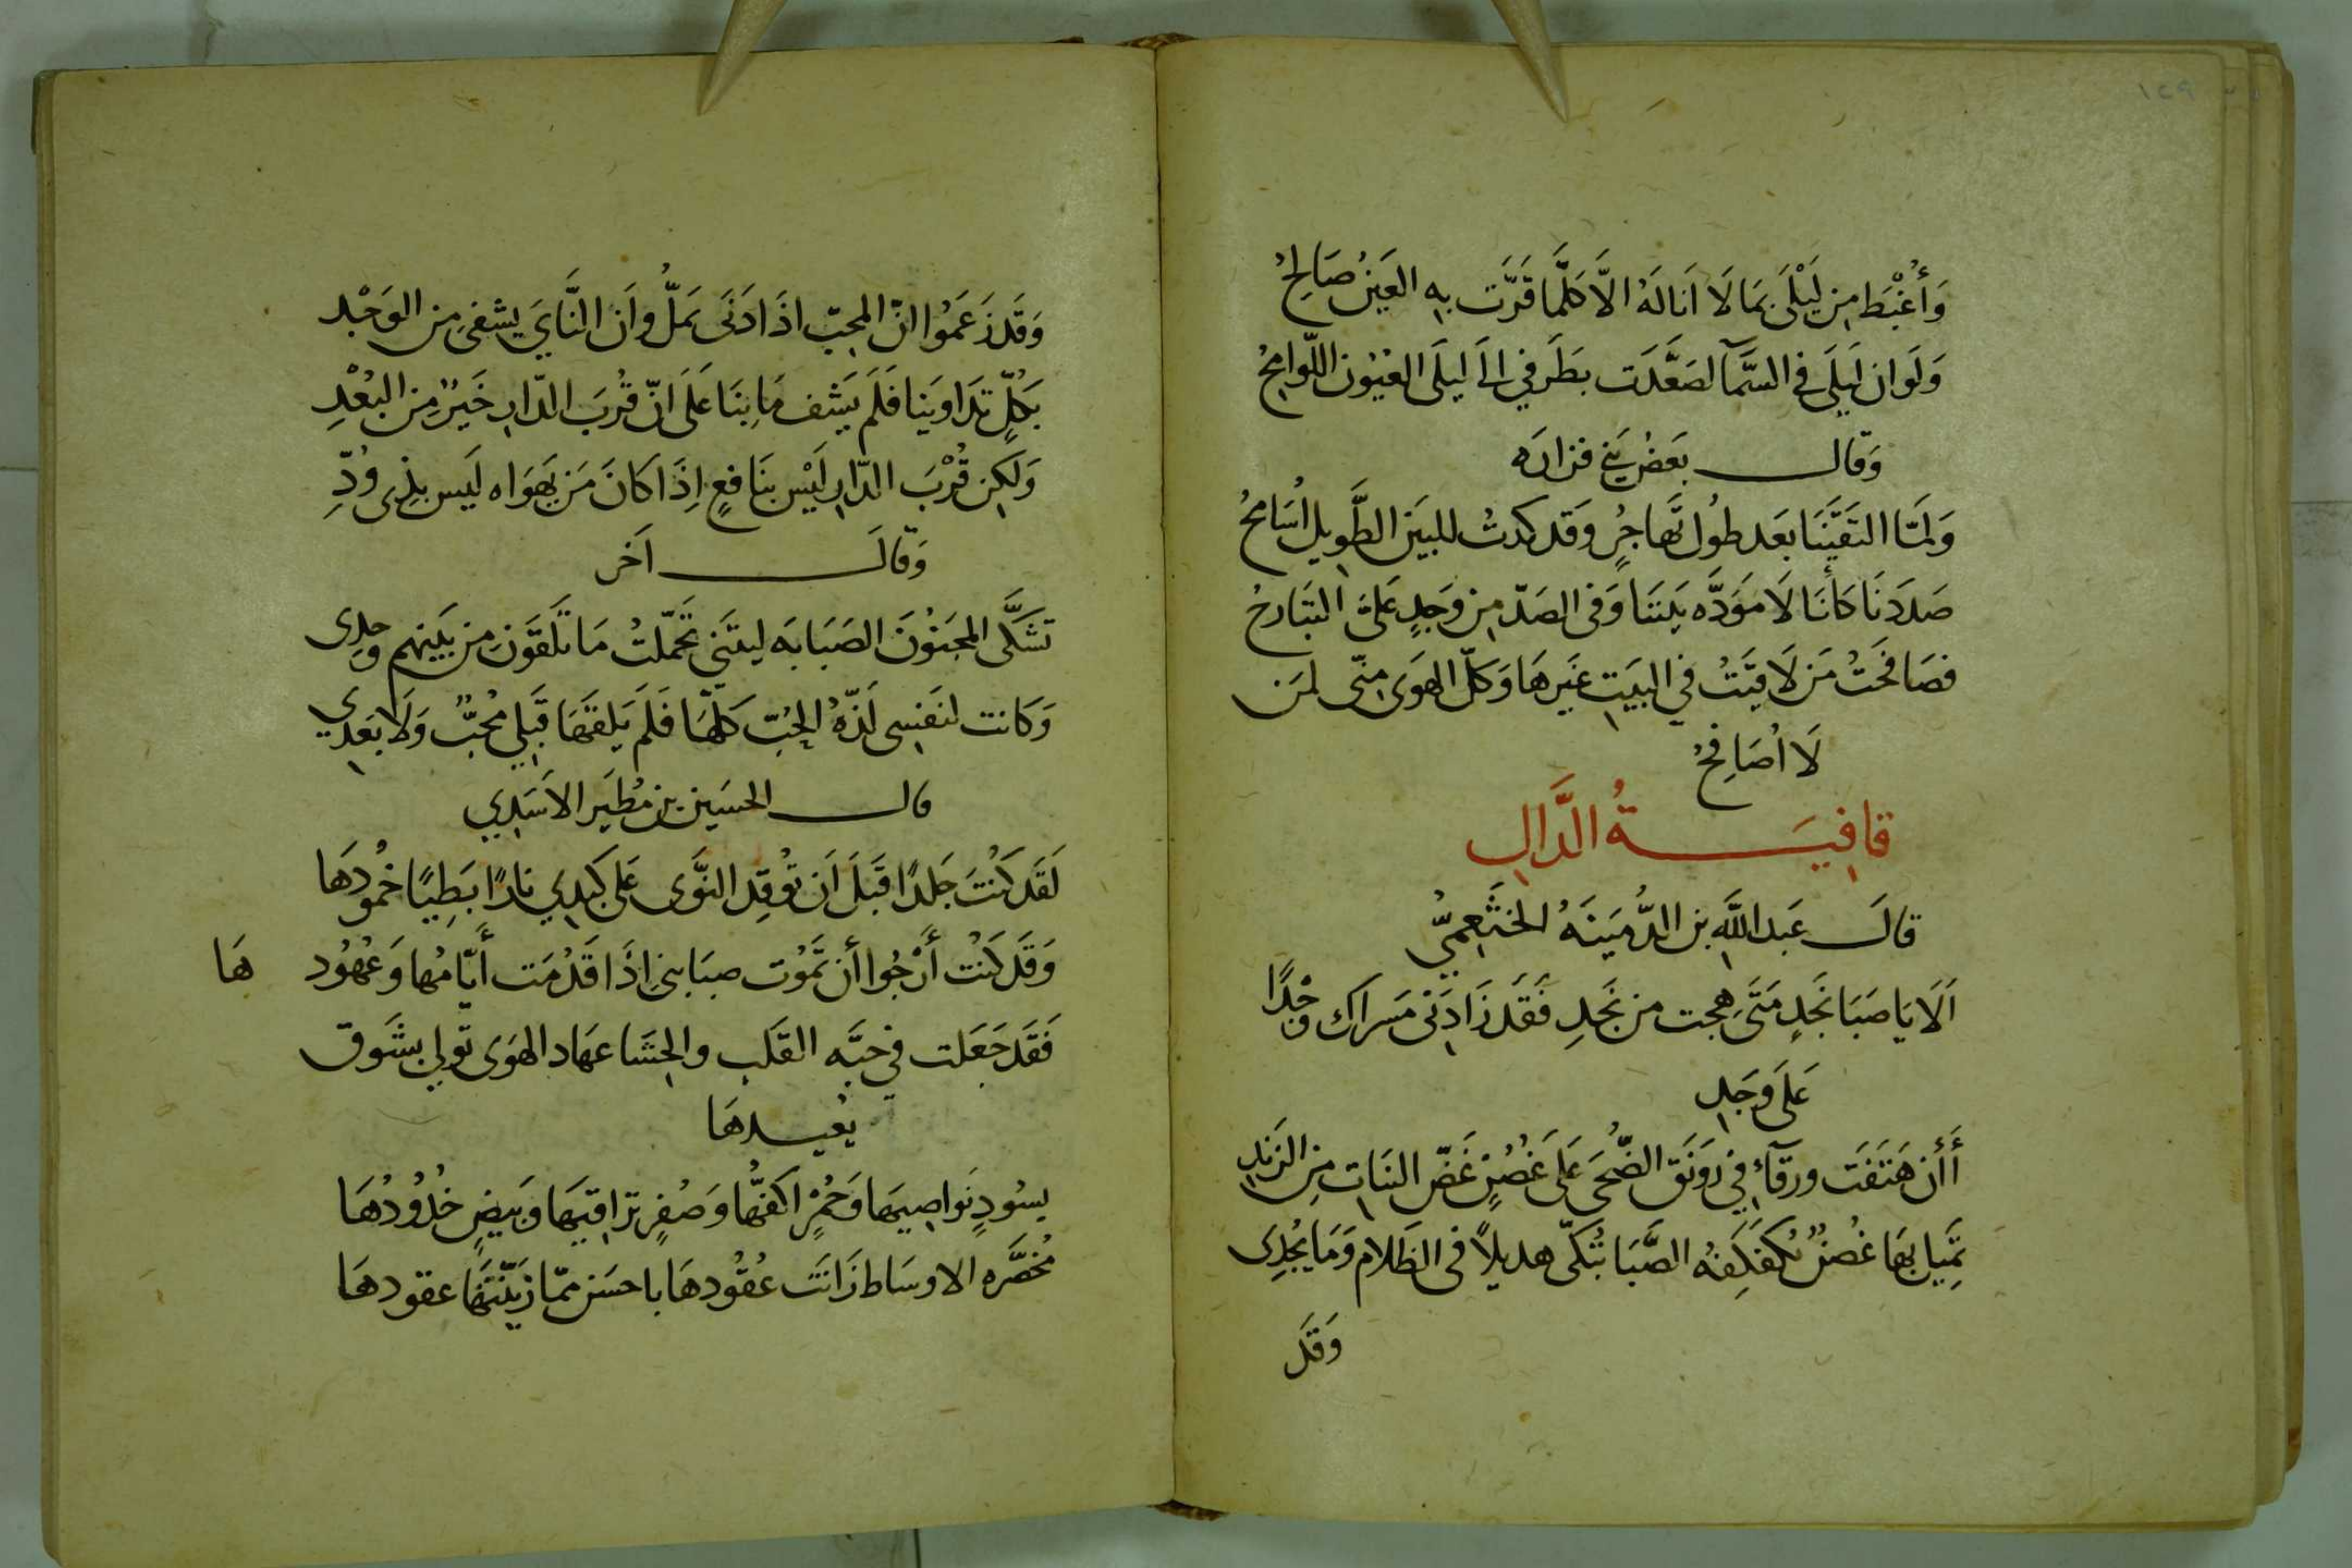 ١٤٩
وَأُغْبَط مِن لَيْلَى بمَا لَا اَنَالهُ الَّا كلَّمَا قَرَّت بِهِ العَينُ صَالِحُ
وَلَوان لَيلَى فى السَّمآ لصَعَّدَت بطَرفي الَى ليلَى العُيُون اللّوامِحُ
وَقَال بعَضُ بَنِي فزارَه
وَلَمّا التقَيَّنَا بَعَد طوُل تَهاجُرٍ وَقَد كدتُ للبيَن الطَّويلِ اُسَامحُ
صَدَدنَا كَأنَا لَا مَوَدَّه بَينَنَا وَفى الصَدّ مِن وَجدٍ عَلَىّ التبَارحُ
فصَافَحَتُ مَن لَاقَيَتُ في البيَتِ غَيَرهَا وَكلّ الهوَى مِنّى لمَن
لَا اُصَافِحُ
قافِيَةُ الدَّالِ
قالَ عَبدالله بن الدُّمَينَهُ الخثَعِميُّ
اَلَا يَا صَبَا نَجَدٍ مَتَى هِجت من نَجَدِ فَقَد زَادَنى مَسراك وَجْدًا
عَلَى وَجَدِ
أَأَن هَتَفَت ورقآء في رَونَق الضُّحَى عَلى غَصُنٍ غَضّ النبَات مِن الرَندِ
تمَيل بهَا غُصنٌ تكفكِفهُ الصَّبَا تُبَكّى هديلاً فى الظَلام وَمَا يُجْدِى
وَقَد
وَقَد زَعَمُوا انّ المحِبّ اذَا دَنَى يَمَلُّ وَاَن النَّايَ يشفى مِن الوَجْد
بكُلّ تدَاوَينا فَلَم يَشف مَا بِنَا عَلَى انّ قُربَ الدّار خَيرٌ مِن البُعْدِ
وَلَكِن قُرْبَ الدّار لَيْس بنَافعٍ اِذَا كانَ مَن تهَوَاه لَيس بذِى وُدِّ
وَقَالَ آخَر
تشَكَّى المحِبَوُّنَ الصَبَابَه ليتَني تَحَمّلتُ مَا تَلَقَوَن مِن بَينِهم وَحدِى
وَكانت لنفَسِى لَذّهُ الحُبّ كلّهَا فَلَم يَلقهَا قَبَلي مُحبٌّ وَلَا بَعَدِي
قال الحسَين بن مُطَير الاسَدِي
لَقَد كَنْتُ جَلدًا قَبَلَ اَن توُقِد النَّوَى عَلى كَبدِي نارًا بَطِيًا خمُودهَا
وَقَد كَنْت أَرْجُوا أن تمُوت صبَابتي اِذَا قَدُمَت أَيّامُها وَعُهُود هَا
فَقَد جَعَلت في حبَّه القَلبِ والحِشَا عهَاد الهَوى توَلى بشَوق
يعُيدهَا
بسُودٍ نَواصِيهَا وَحُمْرٍ اكفهَّا وَصُفرٍ ترَاقيَها وَبَيضٍ خُدُودُهَا
مُخصَّره الاوسَاط زَانَت عُقُودهَا باحسَن ممّا زيَّنَتهَا عقودهَا